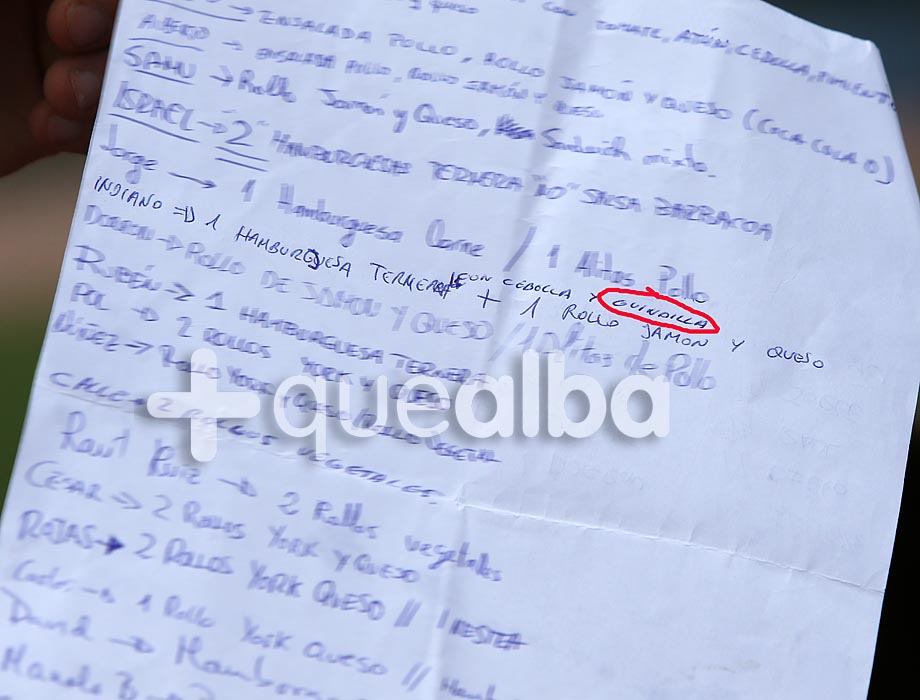 y queso con TOMATE, ATÚN, CEBOLLA, PIMIENTO
→ ENSALADA POLLO, ROLLO JAMÓN Y QUESO (COCA COLA 0)
ALBERTO → ENSALADA POLLO, ROLLO JAMÓN Y QUESO
SAMU → Rollo Jamón y Queso, Sandwich mixto.
ISRAEL → "2" HAMBURGUESAS TERNERA "NO" SALSA BARBACOA
Jorge → 1 Hamburguesa Carne / 1 Alitas Pollo
INDIANO => 1 HAMBURGUESA TERNERA CON CEBOLLA Y GUINDILLA
+ 1 ROLLO JAMÓN Y QUESO
→ ROLLO DE JAMON Y QUESO / 1 Alitas de Pollo
RUBÉN → 1 HAMBURGUESA TERNERA
POL → 2 ROLLOS YORK Y QUESO
NÚÑEZ → ROLLO YORK Y QUESO/ROLLO VEGETAL
VEGETALES.
+quealba
Raúl Ruiz → 2 Rollos vegetales
CESAR → 2 ROLLOS YORK Y QUESO
ROJAS → 2 ROLLOS YORK QUESO // 1 NESTEA
→ 1 Rollo York Queso //
David →
Manolo B →